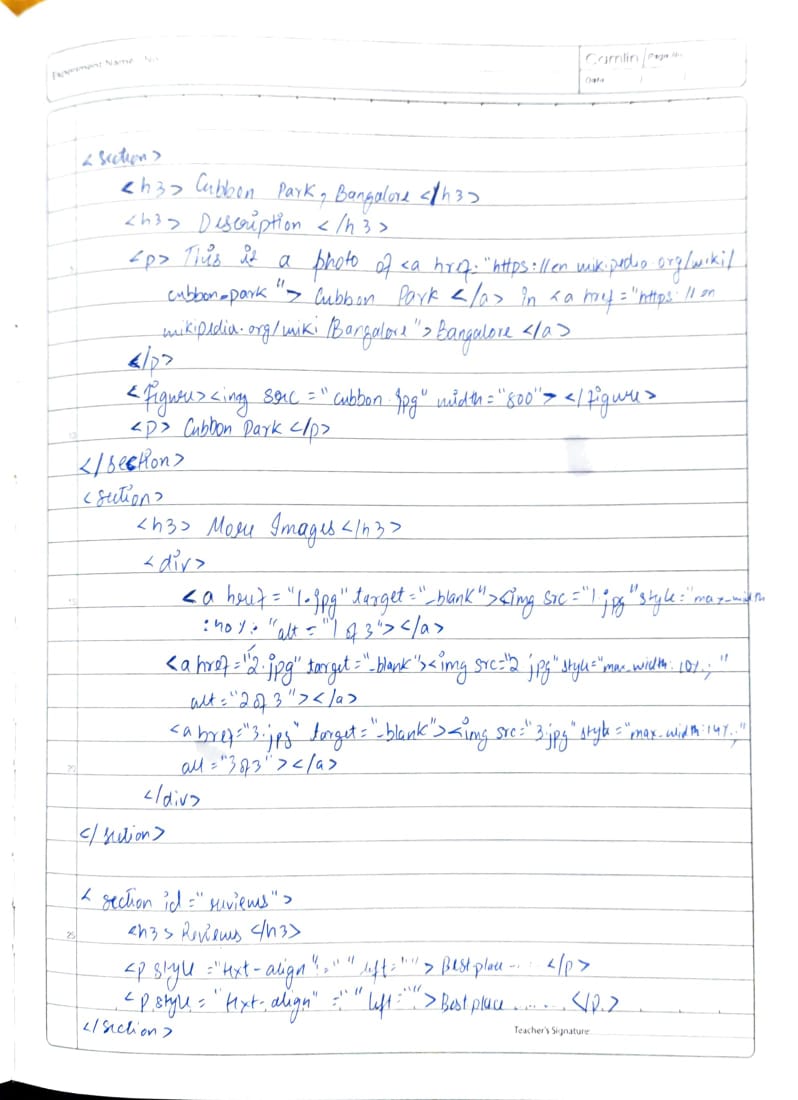 Experiment Name No.
Camlin Page No.
Date / /
<section>
<h3> Cubbon Park, Bangalore </h3>
<h3> Description </h3>
<p> This is a photo of <a href: "https://en wikipedia.org/wiki/
cubbon-park"> Cubbon Park </a> in <a href = "https://en
wikipedia.org/wiki/Bangalore"> Bangalore </a>
</p>
<figure><img src = "cubbon.jpg" width = "800"> </figure>
<p> Cubbon Park </p>
</section>
<section>
<h3> More Images </h3>
<div>
<a href = "1.jpg" target = "_blank"><img src = "1.jpg" style = "max-width
"alt = "1 of 3"></a>
<a href = "2.jpg" target = "_blank"><img src="2 jpg" style="max_width: 10%;"
alt = "2 of 3"></a>
<a href="3.jpg" target = "_blank"><img src="3.jpg" style = "max_width:14%;"
alt = "3 of 3"></a>
</div>
</section>
<section id = "reviews">
<h3> Reviews </h3>
<p style = "text-align"=" "left="""> Best place ... </p>
<p style = "text-align" =" "left=""> Best place ...... </p>
</section>
Teacher's Signature
5
10
15
20
25